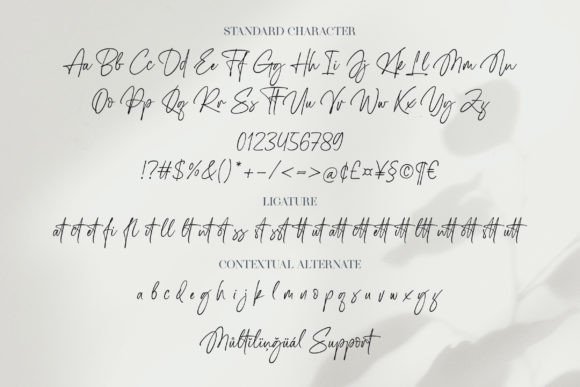 STANDARD CHARACTER
Aa Bb Cc Dd Ee Ff Gg Hh Ii Jj Kk Ll Mm Nn
Oo Pp Qq Rr Ss Tt Uu Vv Ww Xx Yy Zz
0123456789
!?#$%&()*+-/<=>@¢£¤¥§©¶€
LIGATURE
at ct et fi fl it ll lt nt ot ss st sst tt ut att ctt ett itt ltt ntt ott stt utt
CONTEXTUAL ALTERNATE
a b c d e g h i j k l m n o p q s u v w x y z